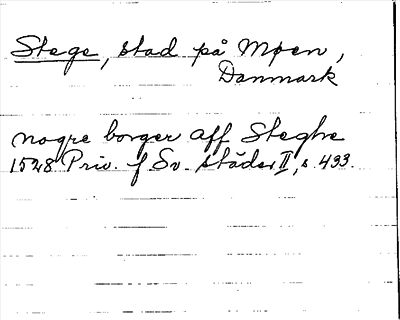 Stege, stad på Møen,
Danmark
nogre borger aff Steghe
1528 Priv. f Sv. städer II, s. 433.